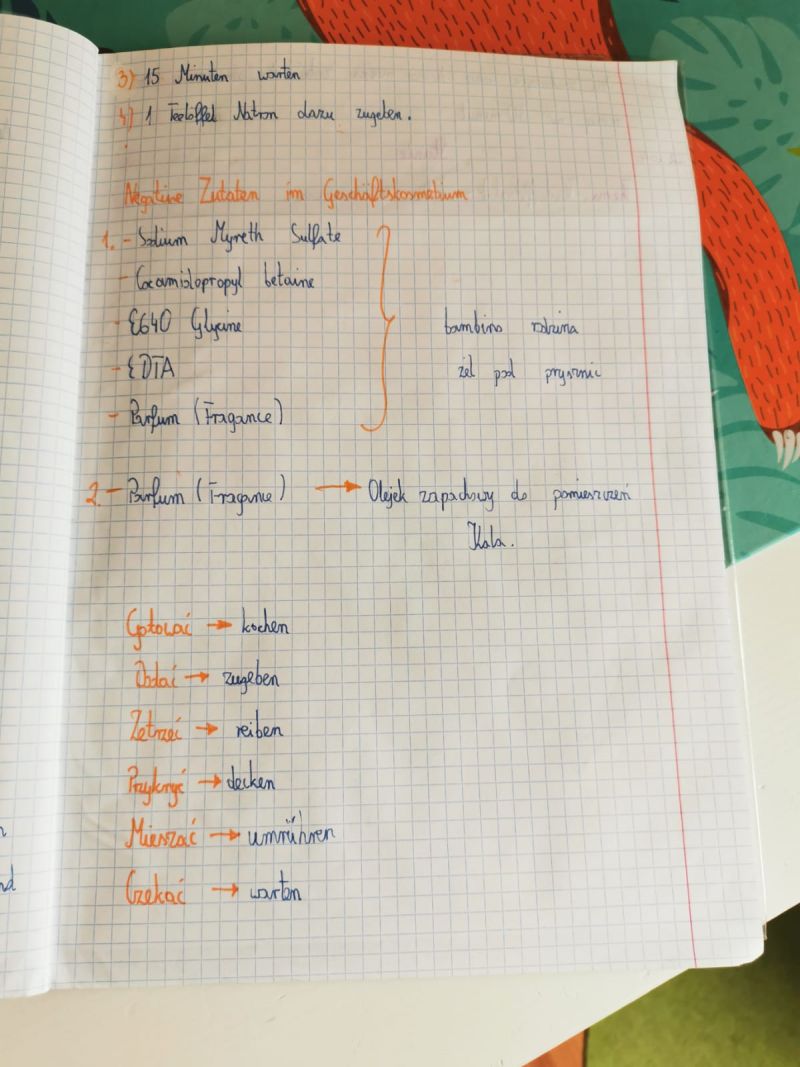 3) 15 Minuten warten
4) 1 Teelöffel Natron dazu zugeben.
Negative Zutaten im Geschäftskosmetikum
1. - Sodium Myreth Sulfate
- Cocamidopropyl betaine
- E640 Glycine
- EDTA
- Parfum (Fragance)
bambino rodzina
żel pod prysznic
2. - Parfum (Fragance) → Olejek zapachowy do pomieszczeń
Kala.
Gotować → kochen
Dodać → zugeben
Zetrzeć → reiben
Przykryć → decken
Mieszać → umrühren
Czekać → warten